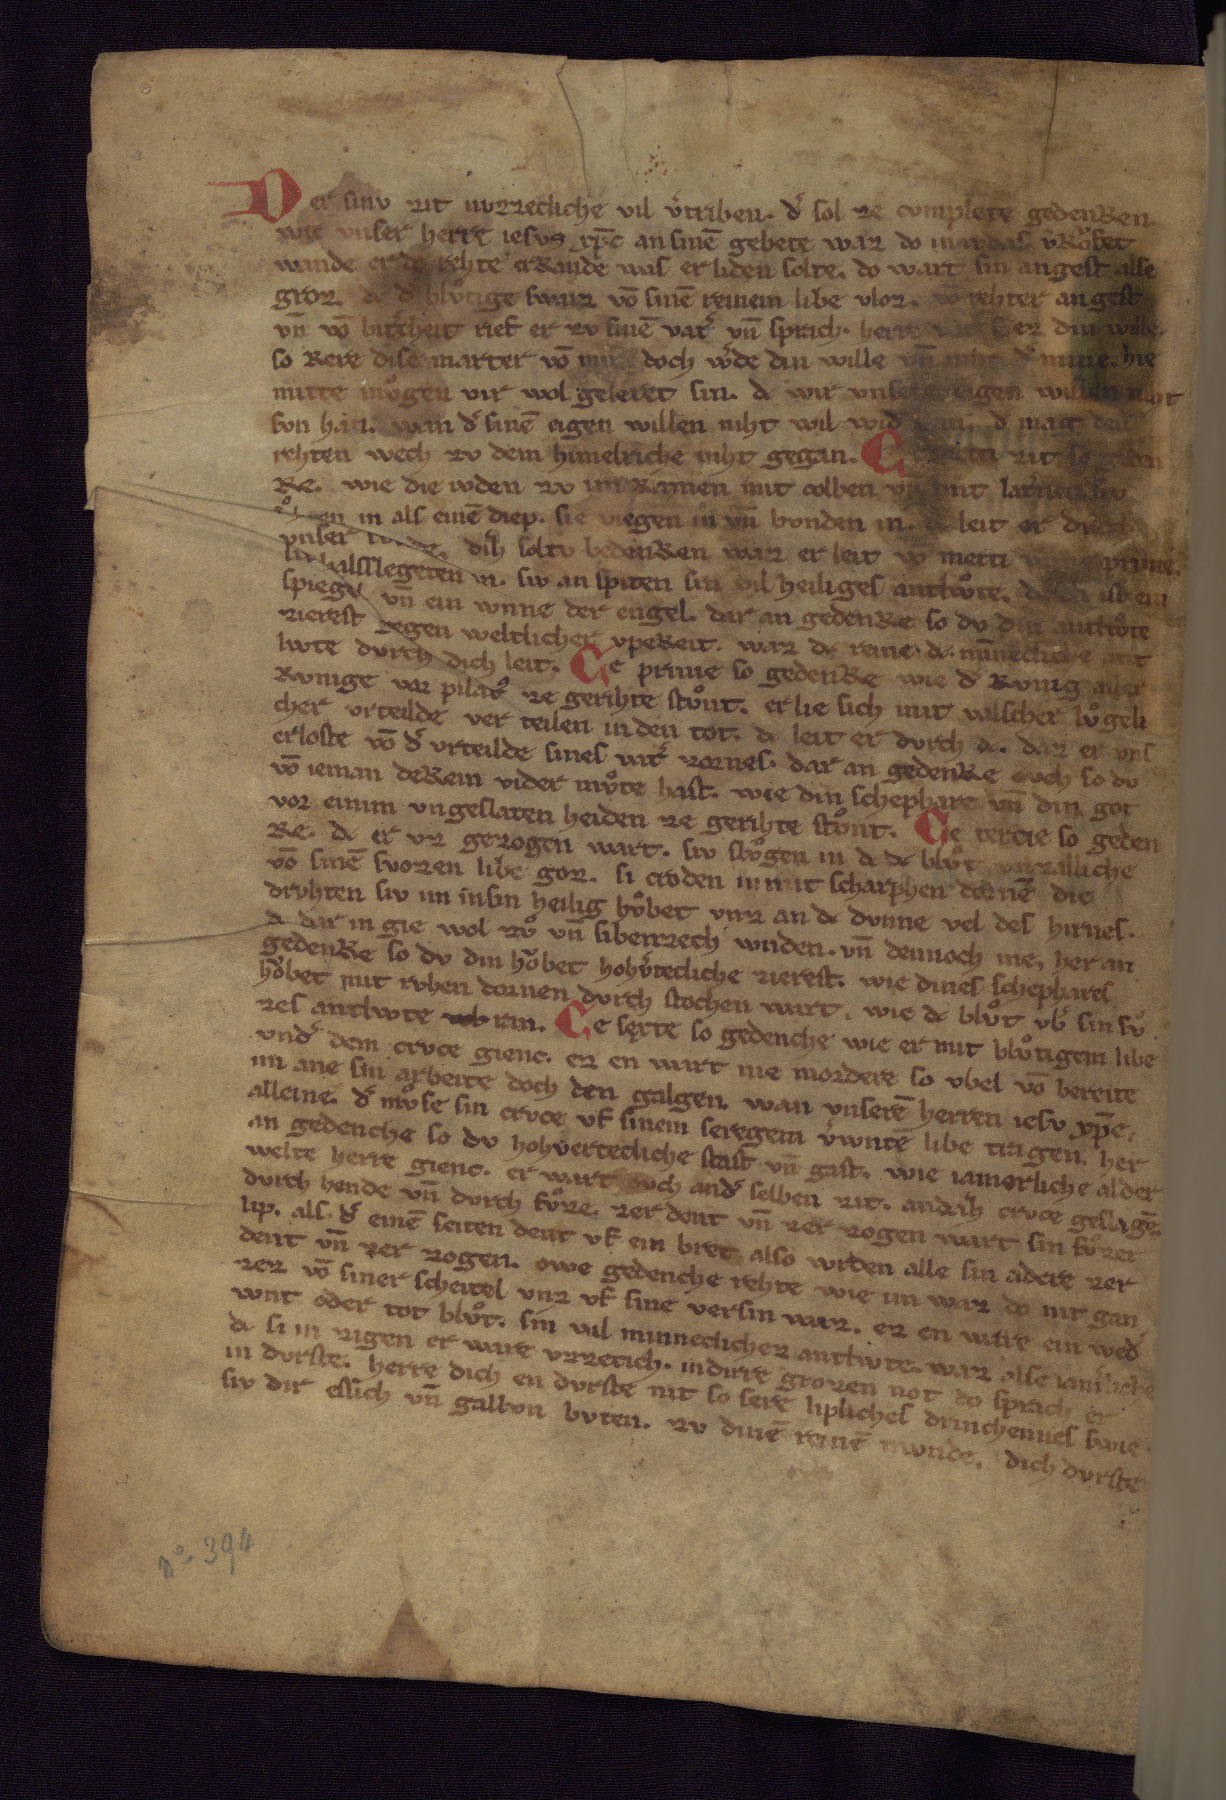 Der sinv zit nvzzecliche vil v͛triben. d͛ sol ze complete gedenken.
wie vnser herre iesvs xp̄c an sinē gebete waz do im v͛kǒfet
wande er do rehte erkande was er liden solte. do wart sin angest alse
groz dc d͛ blv̊tige sweiz vō sinē reinem libe vloz. vō rehter angest
vn̄ vō bit͛cheit rief er zv sinē vat͛ vn̄ sprach. herre ez din wille.
so kere dise marter vō mir doch w͛de din wille vn̄ niht d͛ mine. hie
mitte mv̊gen wir wol geleret sin. dc wir vnseren eigen willen niht
svn han. wan d͛ sinē eigen willen niht wil d͛ mag den
rehten wech zv dem himelriche niht gegan. zit so geden
ke. wie die ivden zv im kamen mit colben vn̄ mit lat͛nen siv
en in als einē diep. sie viegen in vn̄ bvnden in. dc leit er dvrch
vnser dih soltv bedenken waz er leit vō metti prime.
halsslegeten in. siv an spiten sin vil heiliges antlv̊te. ist ein
spiegel vn̄ ein wnne der engel. dar an gedenke so dv din antlv̊te
zierest gegen weltlicher vpekeit. waz dc reine dc minnecliche ant
lvte dvrch dich leit. Ce prime so gedenke wie d͛ kvnig aller
kvnige vor pilat͛ ze gerihte stv̊nt. er lie sich mit valscher lv̊geli
cher vrteilde ver teilen in den tot. dc leit er dvrch dc. daz er vns
erloste vō d͛ vrteilde sines vat͛ zornes. dar an gedenke ovch so dv
vō ieman dekein wider mv̊te hast. wie din schephare vn̄ din got
vor einim vngeslaten heiden ze gerihte stv̊nt. Ce tercie so geden
ke. dc er vz gezogen wart. siv slv̊gen in dc dc blv̊t vnzalliche
vō sinē svozen libe goz. si croden in mit scharphen dornē die
drvhten siv im in sin heilig hv̊bet vnz an dc dvnne vel des hirnes.
dc dar in gie wol zv̊ vn̄ sibenzech wnden. vn̄ dennoch me. her an
gedenke so dv din hǒbet hohv͛tecliche zierest. wie dines schephares
hǒbet mit rvhen dornen dvrch stochen wart. wie dc blv̊t vb͛ sin sv̊
zes antlvte ran. Ce sexte so gedenche wie er mit blv̊tigem libe
vnd͛ dem crvce gienc. ez en wart nie mordere so vbel vō bereite
im ane sin arbeite doch den galgen. wan vnserē herren iesv xp̄e.
alleine. d͛ mv̊se sin crvce vf sinem seregem v͛wntē libe tragen. her
an gedenche so dv hohvertecliche stast vn̄ gast. wie iamerliche al der
welte herre gienc. er wart ovch and͛ selben zit. an daz crvce geslagē.
dvrch hende vn̄ dvrch fv̊ze. zer dent vn̄ zer zogen wart sin sv̊zer
lip. als d͛ einē seiten dent vf ein bret. also wrden alle sin adere zer
dent vn̄ zer zogen. owe gedenche rehte wie im waz do nit gan
zez vō siner scheitel vnz vf sine versin waz. ez en ware ein wed͛
wnt oder tot blv̊t. sin vil minneclichez antlvte. waz alse iam͛liche
dc si in zigen er ware vzzetich. in dirre grozen not do sprach er
in dvrste. herre dich en dvrste nit so sere liplichel drinchennes swie
siv dir essich vn̄ gallvn bvten. zv dinē reinē mvnde. dich dvrste
No. 394